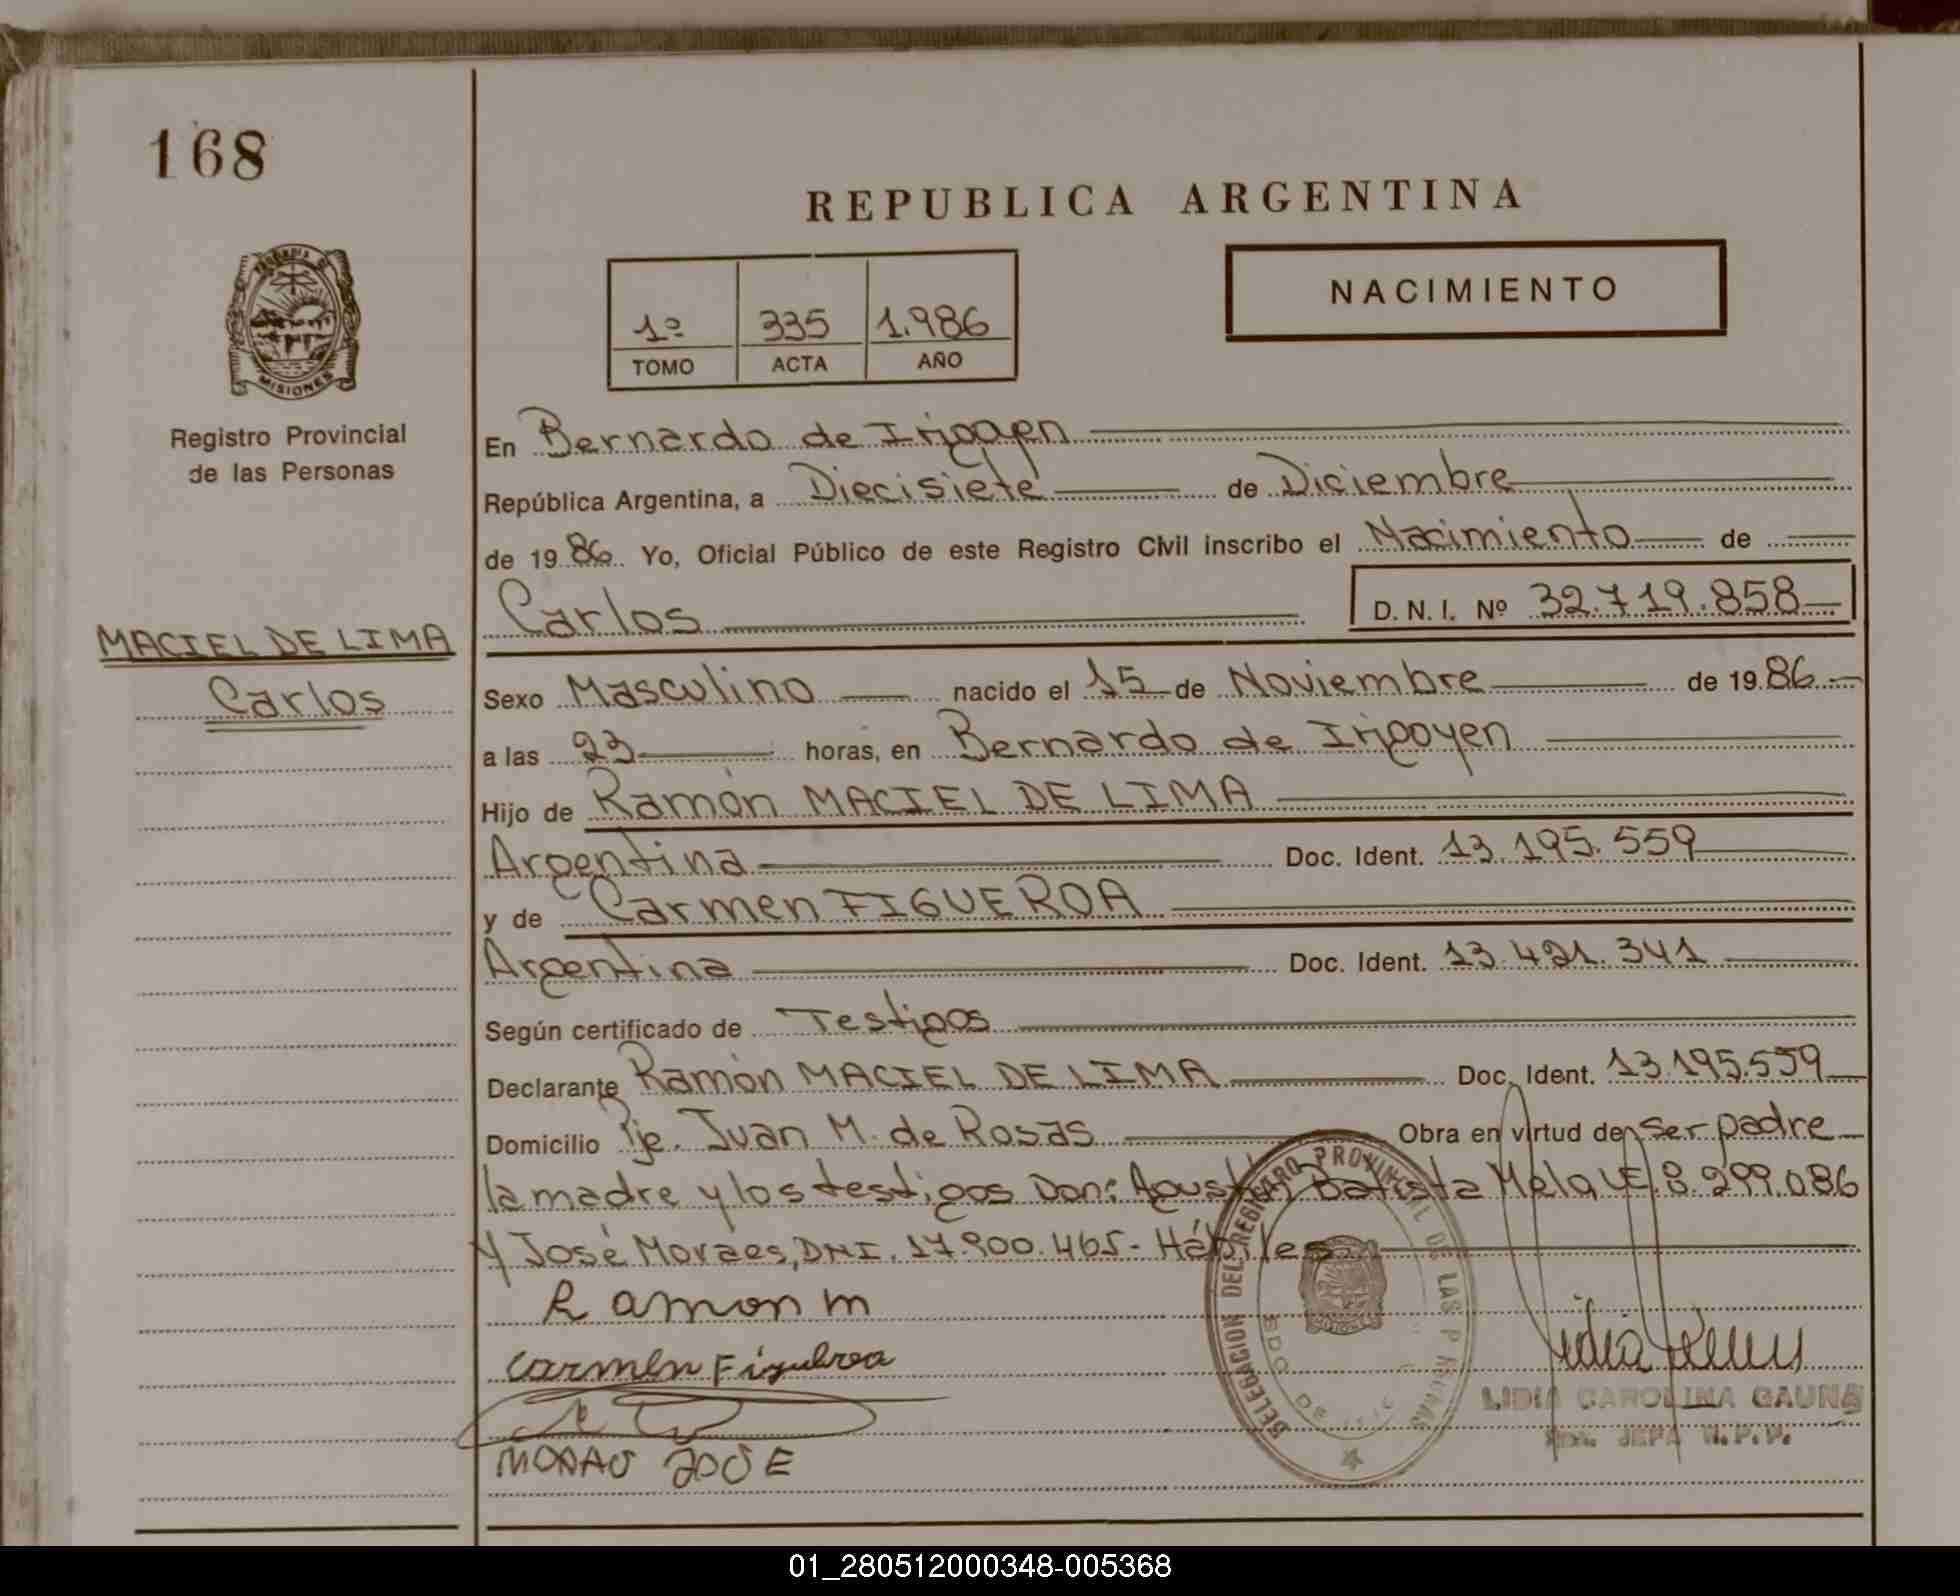 168
REPUBLICA ARGENTINA
MISIONES
Registro Provincial
de las Personas
1º 335 1.986
TOMO ACTA AÑO
NACIMIENTO
En Bernardo de Irigoyen
República Argentina, a Diecisiete de Diciembre
de 19 86 Yo, Oficial Público de este Registro Civil inscribo el Nacimiento de
Carlos D.N.I. Nº 32.719.858
MACIEL DE LIMA
Carlos
Sexo Masculino nacido el 15 de Noviembre de 19 86
a las 23 horas, en Bernardo de Irigoyen
Hijo de Ramón MACIEL DE LIMA
Argentina Doc. Ident. 13.195.559
y de Carmen FIGUEROA
Argentina Doc. Ident. 13.421.341
Según certificado de Testigos
Declarante Ramón MACIEL DE LIMA Doc. Ident. 13.195.559
Domicilio Pje. Juan M. de Rosas Obra en virtud de ser padre
la madre y los testigos Don: Agustín Batista Mela LE. 8.299.086
y José Moraes, DNI. 17.900.465- Hábiles
Ramon m
Carmen Figueroa
JOSE
DELEGACION DEL REGISTRO PROVINCIAL DE LAS PERSONAS
LIDIA CAROLINA GAUNA
JEFA R.P.P.
01_280512000348-005368